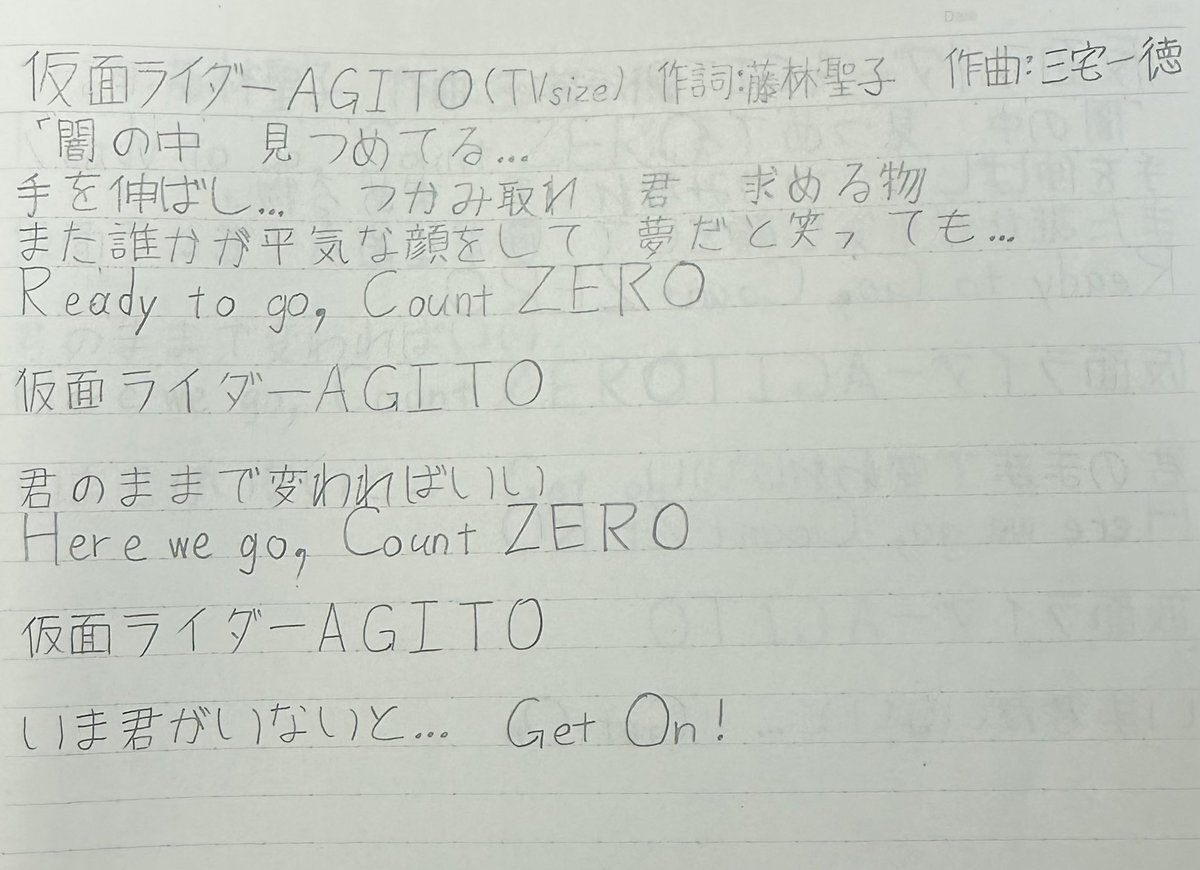 Date
仮面ライダーAGITO(TVsize) 作詞:藤林聖子 作曲:三宅一徳
「闇の中 見つめてる...
手を伸ばし... つかみ取れ 君 求める物
また誰かが平気な顔をして 夢だと笑っても...
Ready to go, Count ZERO
仮面ライダーAGITO
君のままで変わればいい
Here we go, Count ZERO
仮面ライダーAGITO
いま君がいないと... Get On!